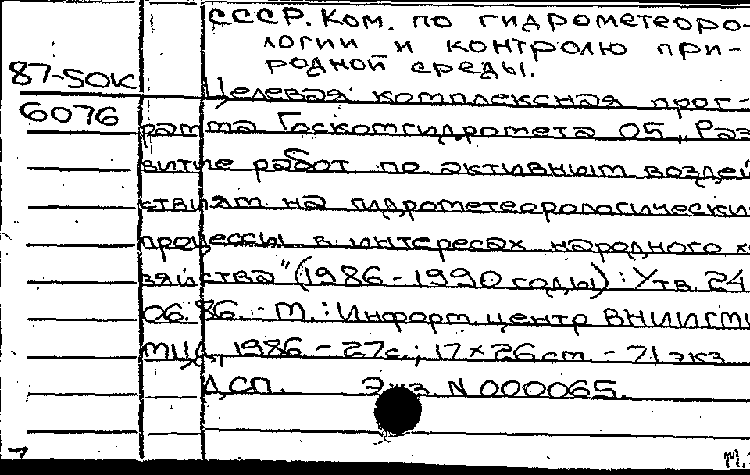 СССР. Ком. по гидрометеоро-
логии и контролю при-
родной среды.
87-50К
Целевая комплексная прог-
6076
рамма Госкомгидромета 05 „Раз
витие работ по активным воздей
ствиям на гидрометеорологически
процессы в интересах народного х
зяйства" (1986-1990 годы): Утв. 24
06.86. - М.: Информ. центр ВНИИГМИ
МЦД, 1986 - 27с.; 17×26 см. - 71 экз
ДСП. Экз. N 000065.